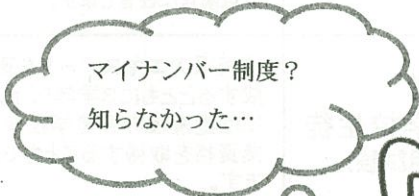 マイナンバー制度？
知らなかった…